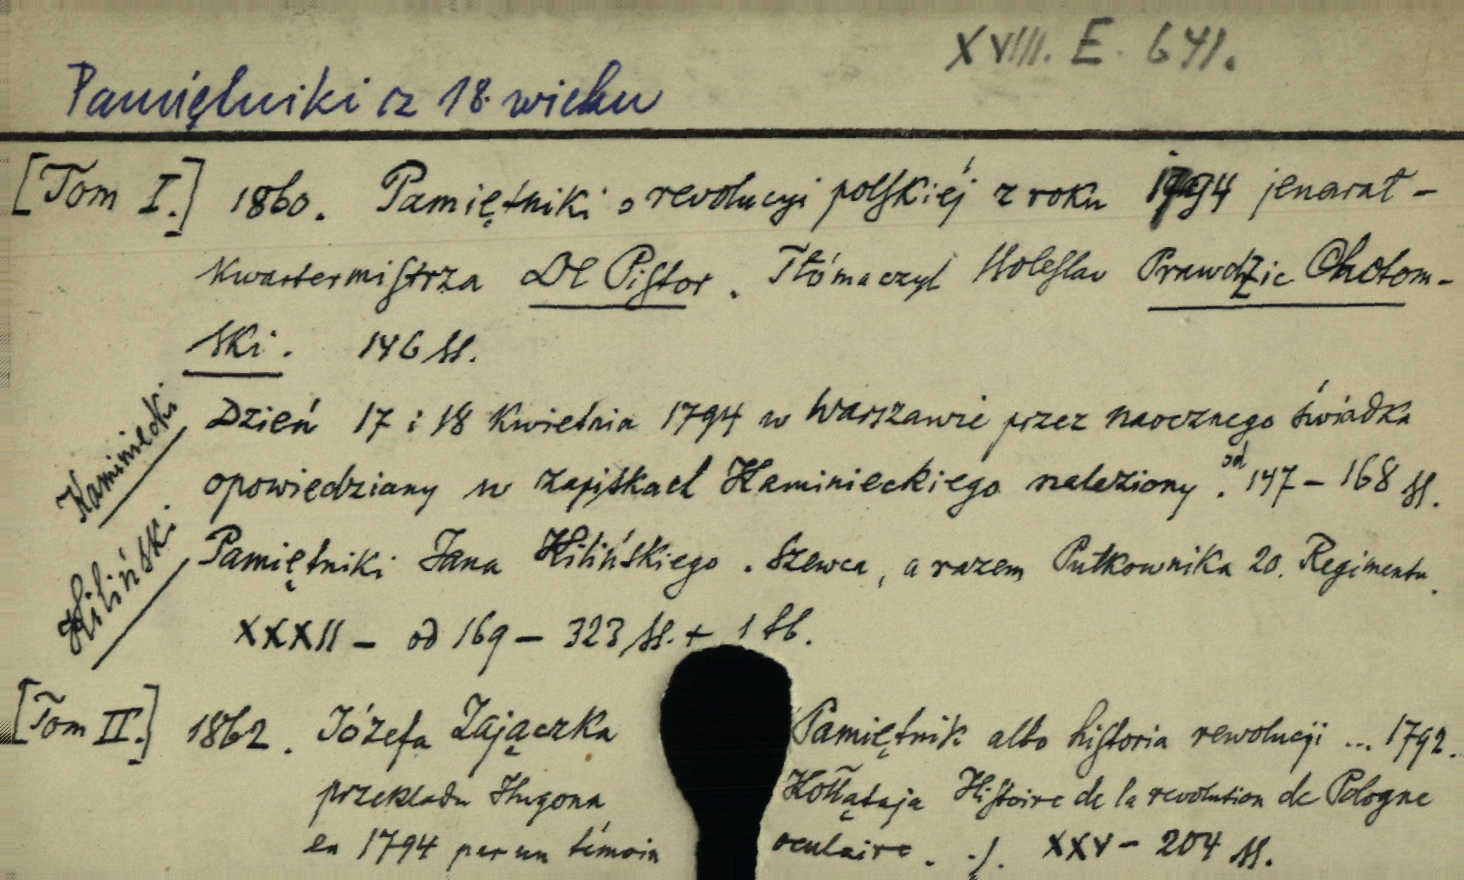 XVIII. E. 641.
Pamiętniki z 18. wieku
[Tom I.] 1860. Pamiętniki o revolucyi polskiéj z roku 1794 jenerał-
kwatermistrza De Pistor. Tłómaczył Boleslav Prawdzic Chotom-
ski. 146 ss.
Dzień 17 i 18 Kwietnia 1794 w Warszawie przez naocznego świadka
Kaminiecki
opowiedziany w zapiskach Kaminieckiego naleziony. od 147 - 168 ss.
Kiliński
Pamiętniki Jana Kilińskiego. Szewca, a razem Pułkownika 20. Regimentu.
XXXII - od 169 - 323 ss. + 1 tb.
[Tom II.] 1862. Józefa Zajączka Pamiętnik albo historia rewolucji ... 1792.
przekładu Hugona Kołłątaja Histoire de la revolution de Pologne
en 1794 par un témoin oculaire. .j. XXV - 204 ss.